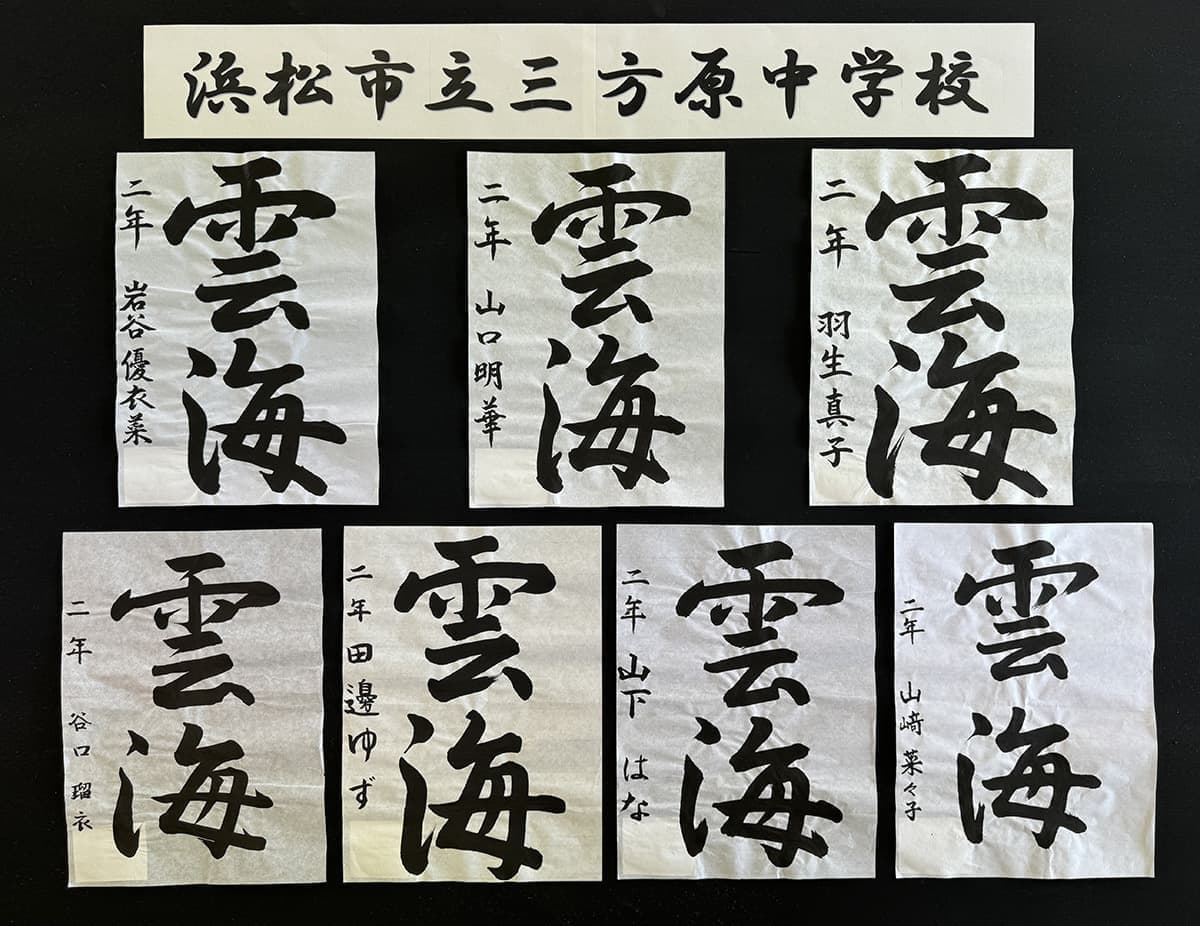 浜松市立三方原中学校
雲海
二年 岩谷優衣菜
雲海
二年 山口明華
雲海
二年 羽生真子
雲海
二年 谷口瑠衣
雲海
二年 田邊ゆず
雲海
二年 山下はな
雲海
二年 山﨑菜々子